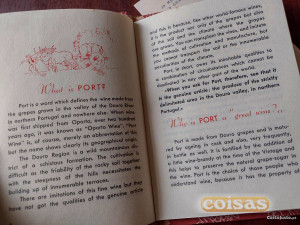 What is PORT?
Port is a word which defines the wine made from
the grapes grown in the region of the Douro River in
northern Portugal and nowhere else. When wine
was first shipped from Oporto, over two hundred
years ago, it was known as "Oporto Wine". "Port
Wine" is, of course, merely an abbreviation of this
but the name shows clearly its geographical origin.
The Douro Region is a wild mountainous dis-
trict of a schistous formation. The cultivation is
difficult as the friability of the rocky soil together
with the steepness of the hills necessitates the
building up of innumerable terraces.
There are imitations of this fine wine but they
have not got the qualities of the genuine article
and this is because, like other world-famous wines,
it is the product not only of the grapes but also
of the soil and the climate where the grapes
are grown. You can transplant the vines and imitate
the methods of cultivation and manufacture, but
you cannot transport the soil or the innumerable
conditions of the climate.
Port, in short, owes its inimitable qualities to
a combination of circumstances which cannot be
duplicated in any other part of the world.
"When you ask for Port, therefore, see that it
is the genuine article: the produce of the strictly
delimitated area in the Douro valley, in northern
Portugal."
Why is PORT a great wine?
Port is made from Douro grapes and is matu-
red by ageing in cask and, very frequently,
in bottle as well. It is fortified by the addition of
a little wine-brandy at the time of the Vintage and
this helps to preserve the natural grape-sugar in
the wine. Port is the choice of those people who
understand wine, because it has the property of
coisas